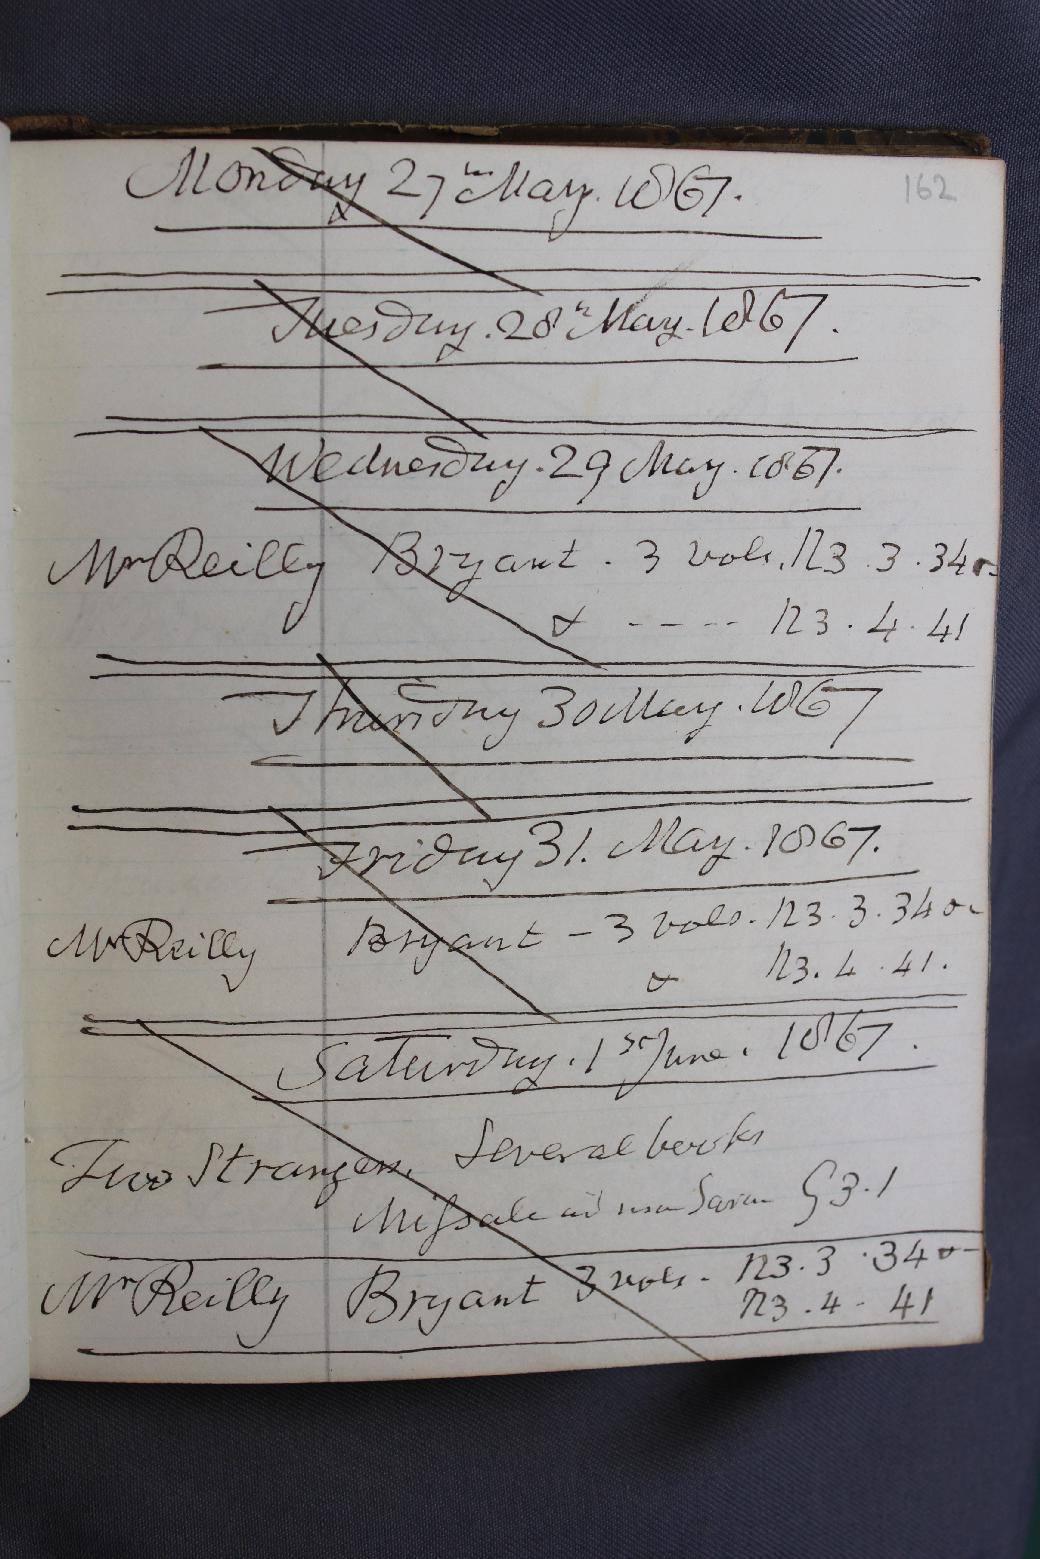 162
Monday 27th May. 1867.
&
Tuesday. 28th May. 1867.
Wednesday. 29 May. 1867.
Mr Reilly Bryant . 3 vols. N3 . 3 . 34
& - - - - N3 . 4 . 41
Thursday 30 May. 1867
Friday 31. May. 1867.
Mr Reilly Bryant - 3 vols. N3 . 3 . 34
& N3 . 4 . 41.
Saturday. 1st June. 1867.
Two Strangers. Several books
Missale ad usum Sarum 3 . 1
Mr Reilly Bryant 3 vols - N3 . 3 . 34
N3 . 4 - 41